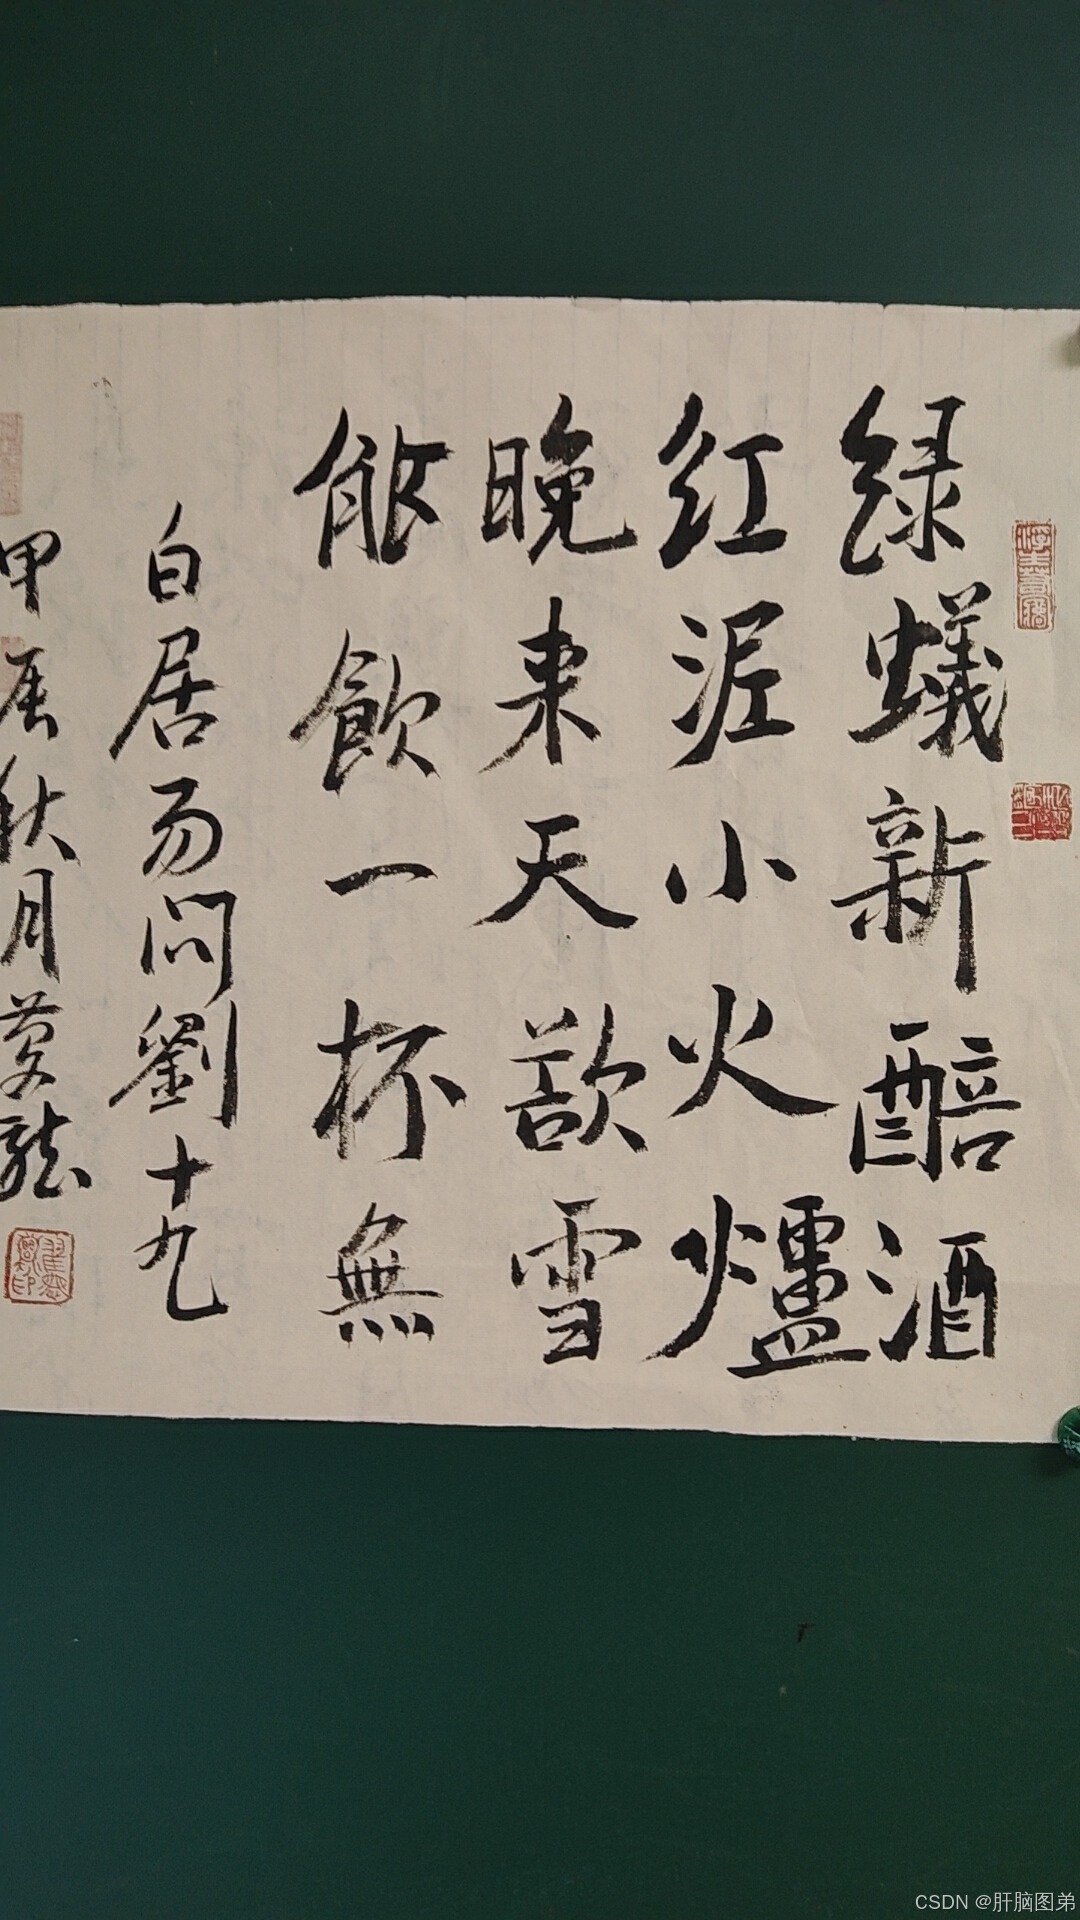 绿蟻新醅酒
红泥小火爐
晚来天欲雪
能飲一杯無
白居易問劉十九
甲辰秋月夢龍
CSDN @肝脑图弟